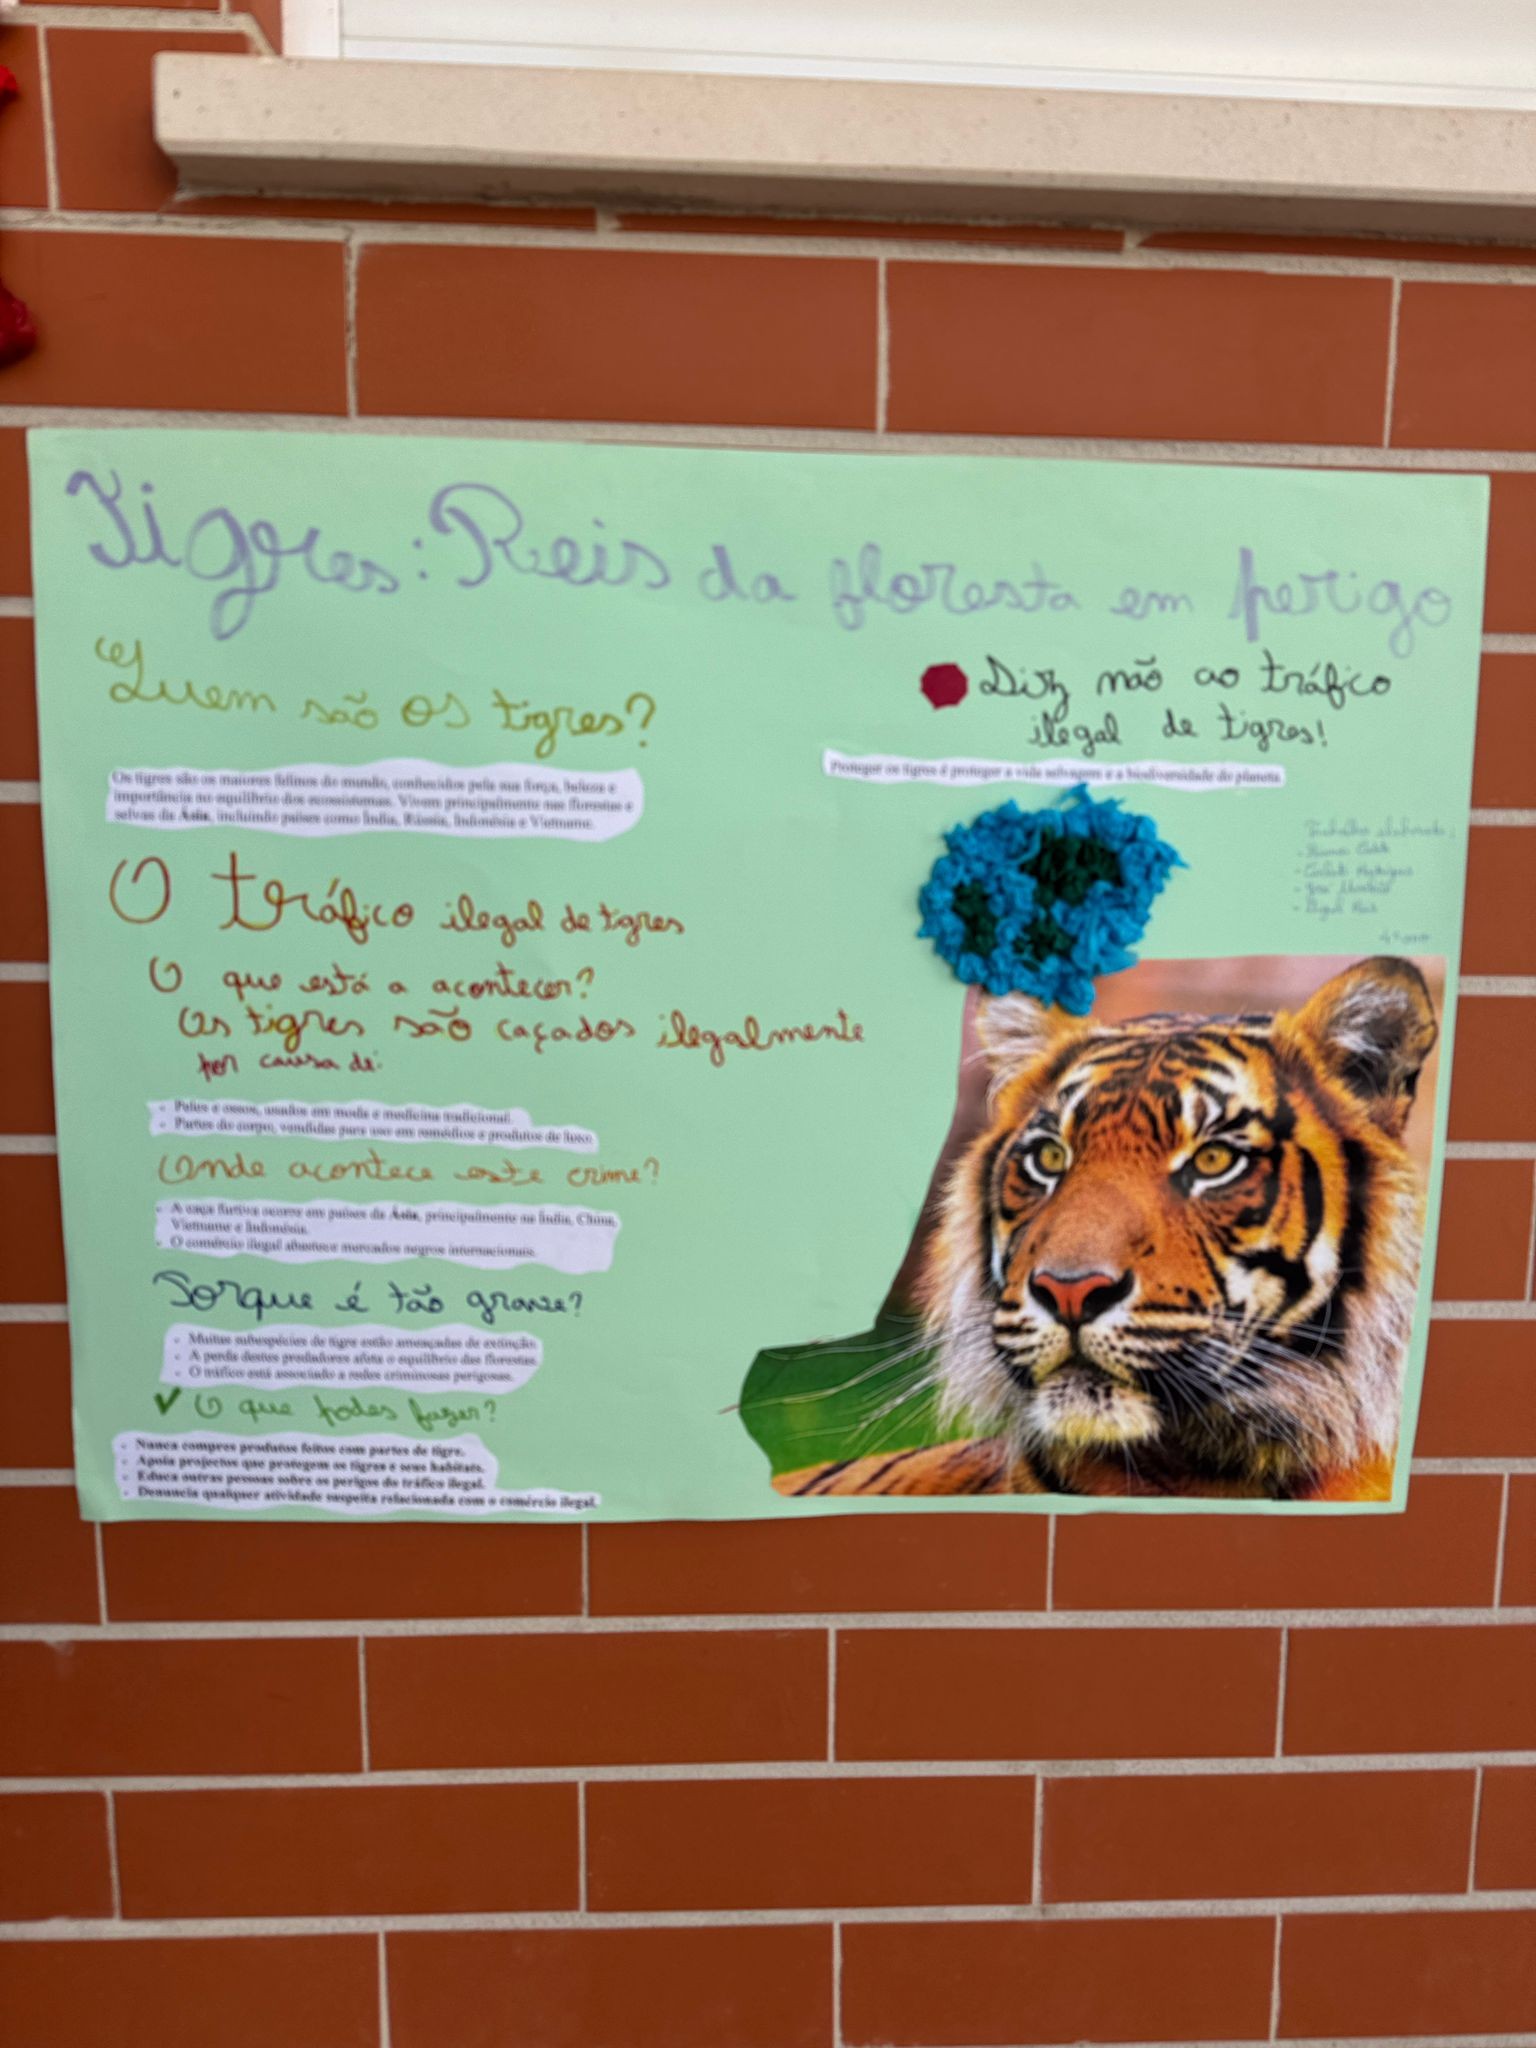 Tigres: Reis da floresta em perigo
Quem são os tigres?
Os tigres são os maiores felinos do mundo, conhecidos pela sua força, beleza e
importância no equilíbrio dos ecossistemas. Vivem principalmente nas florestas e
selvas da Ásia, incluindo países como Índia, Rússia, Indonésia e Vietname.
O tráfico ilegal de tigres
O que está a acontecer?
Os tigres são caçados ilegalmente
por causa de:
- Peles e ossos, usados em moda e medicina tradicional.
- Partes do corpo, vendidas para uso em remédios e produtos de luxo.
Onde acontece este crime?
- A caça furtiva ocorre em países da Ásia, principalmente na Índia, China,
Vietname e Indonésia.
- O comércio ilegal abastece mercados negros internacionais.
Porque é tão grave?
- Muitas subespécies de tigre estão ameaçadas de extinção.
- A perda destes predadores afeta o equilíbrio das florestas.
- O tráfico está associado a redes criminosas perigosas.
✓ O que podes fazer?
- Nunca compres produtos feitos com partes de tigre.
- Apoia projectos que protegem os tigres e seus habitats.
- Educa outras pessoas sobre os perigos do tráfico ilegal.
- Denuncia qualquer atividade suspeita relacionada com o comércio ilegal.
Diz não ao tráfico
ilegal de tigres!
Proteger os tigres é proteger a vida selvagem e a biodiversidade do planeta.
Trabalho elaborado:
- Rodrigues
- José
4º ano